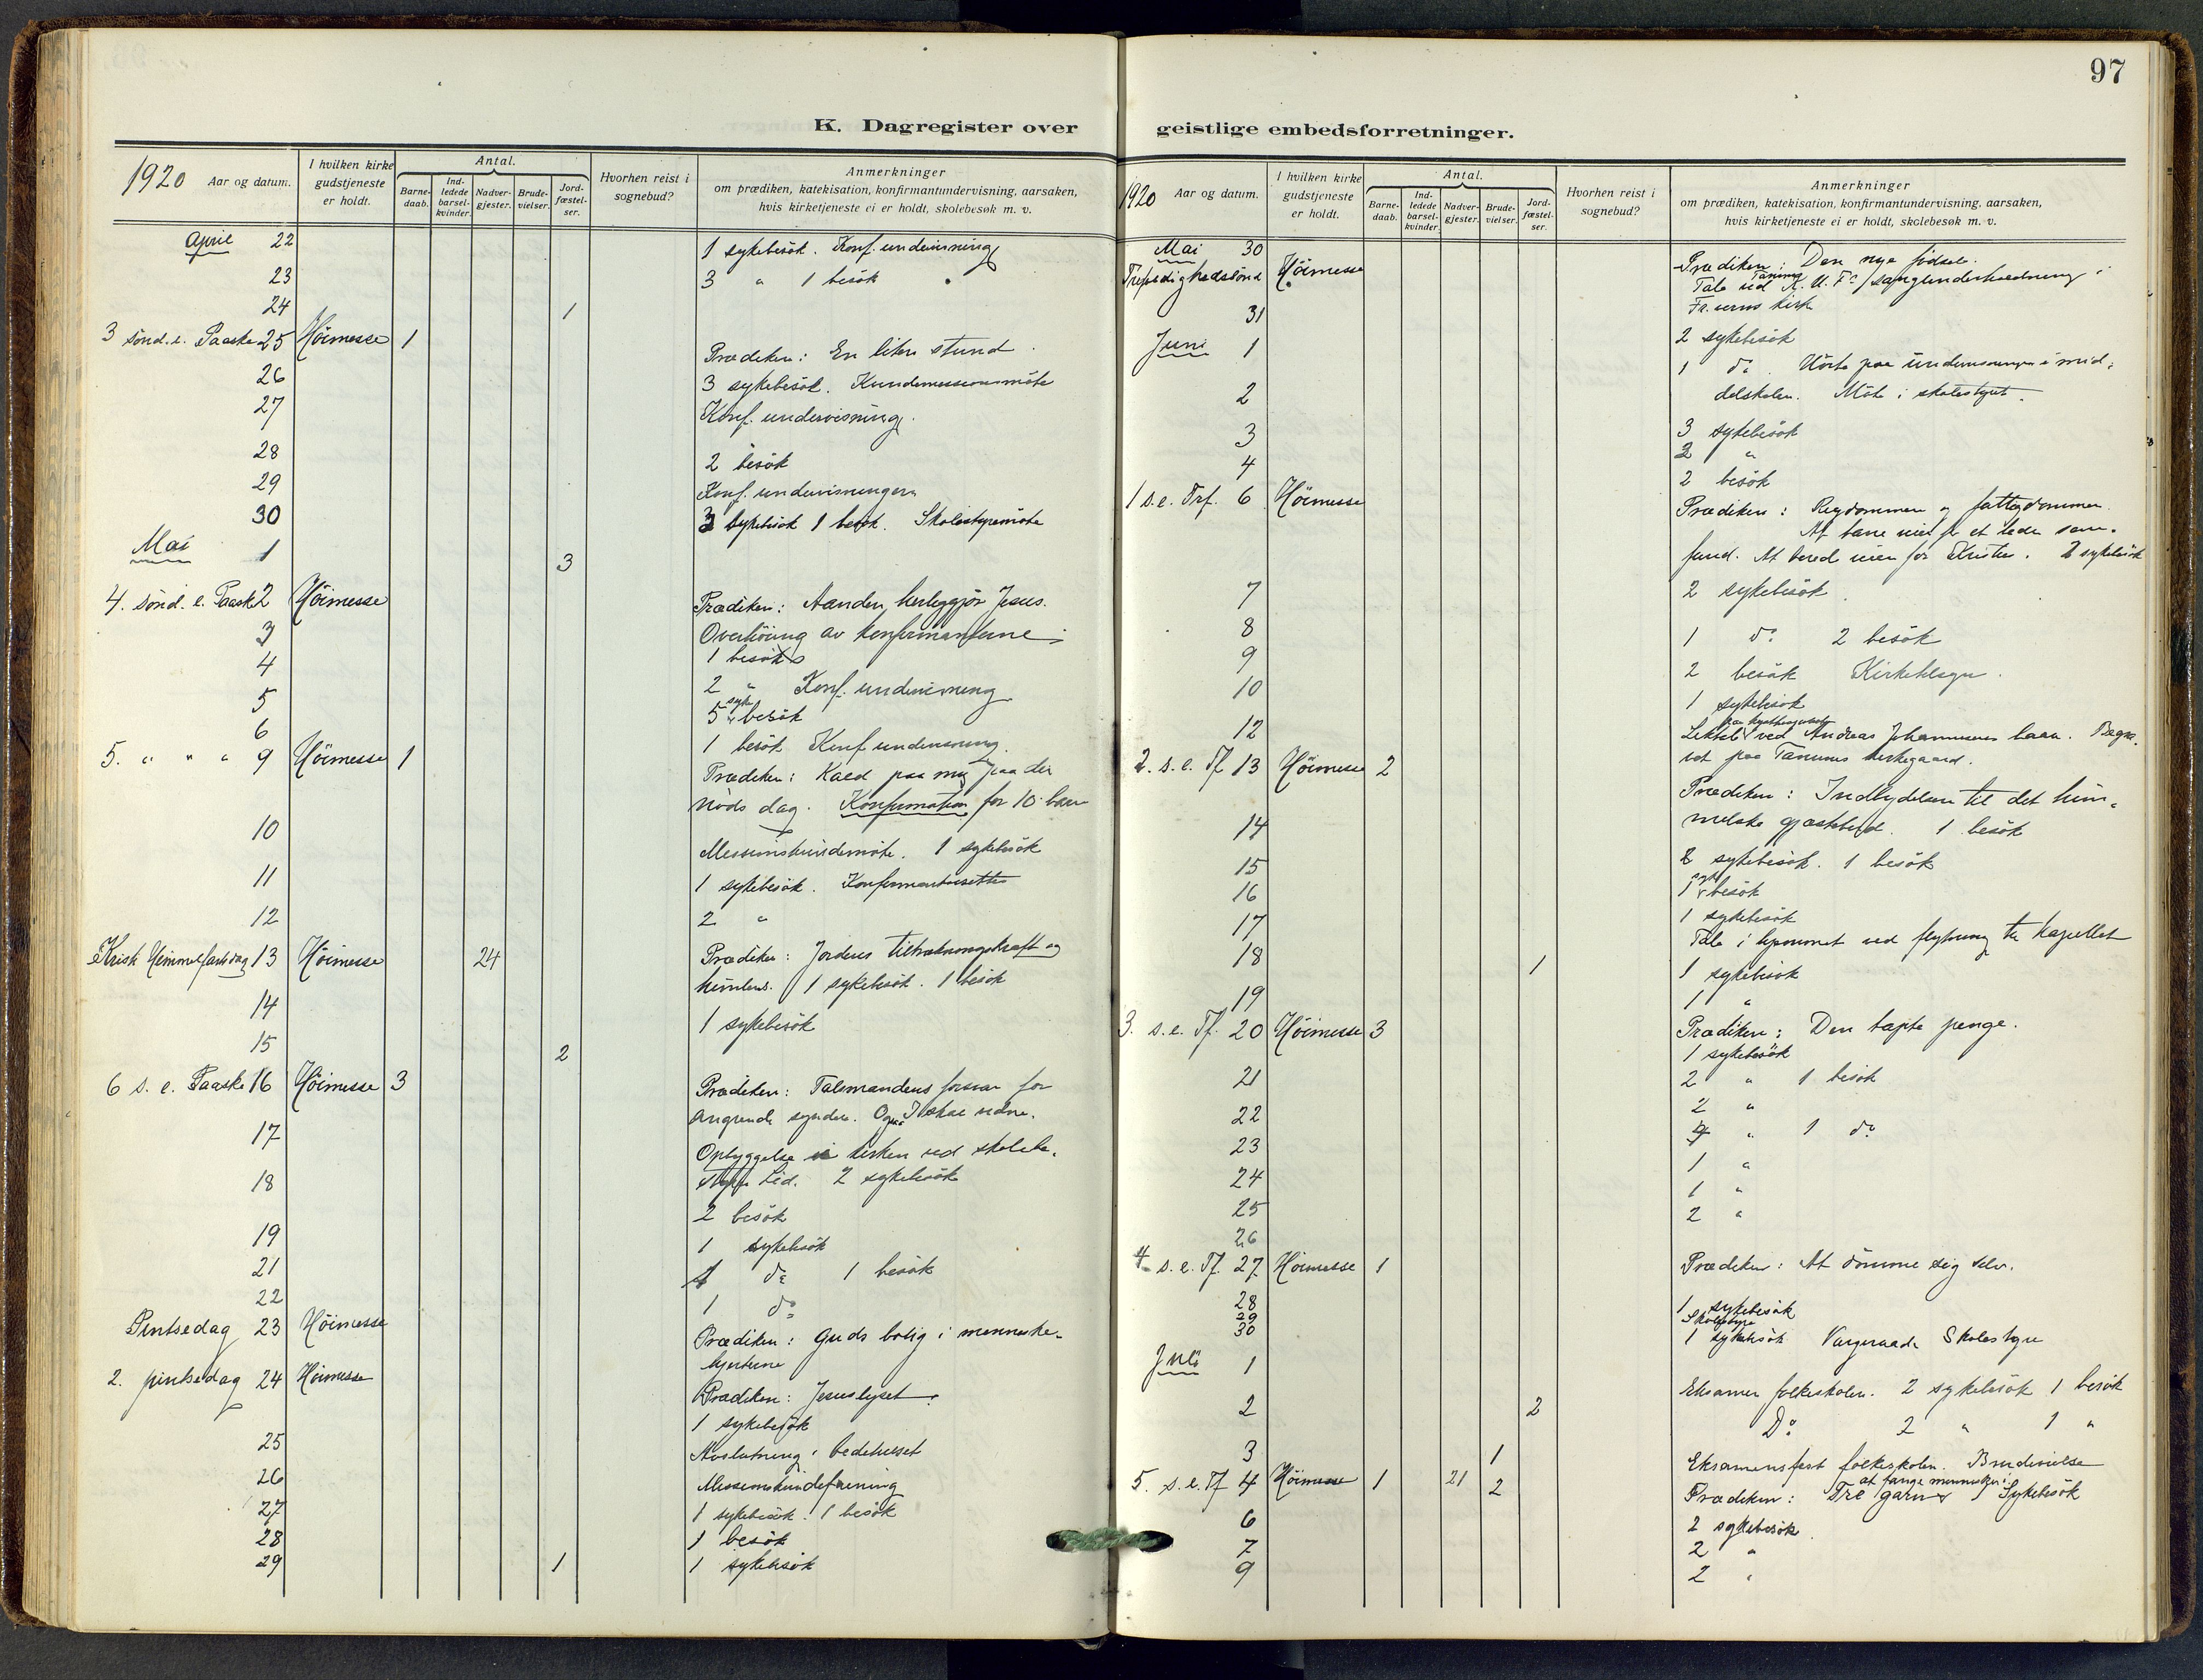 97
K. Dagregister over
geistlige embedsforretninger.
1920 Aar og datum.
I hvilken kirke gudstjeneste er holdt.
Antal.
Barne-daab.
Ind-ledede barsel-kvinder.
Nadver-gjester.
Brude-vielser.
Jord-fæstel-ser.
Hvorhen reist i sognebud?
Anmerkninger
om prædiken, katekisation, konfirmantundervisning, aarsaken,
hvis kirketjeneste ei er holdt, skolebesøk m. v.
April 22 1 sykebesök. Konf. undervisning
23 3 " 1 besök "
24 1
3 sönd. e. Paaske 25 Höimesse 1 Prædiken: En liten stund.
26 3 sykebesök. Kvindemissionsmöte
27 Konf. undervisning.
28 2 besök
29 Konf. undervisningen
30 3 sykebesök 1 besök. Skolestyremöte
Mai 1 3
4. sönd. e. Paaske 2 Höimesse Prædiken: Aanden herliggjör Jesus.
3 Overhöring av konfirmanterne
1 besök
4 2 " Konf. undervisning
5 5 sykebesök
6 1 besök Konf. undervisning.
5. " " " 9 Höimesse 1 Prædiken: Kald paa mig paa din
nöds dag. Konfirmation for 10 barn
10 Missionskvindemöte. 1 sykebesök
11 1 sykebesök.
12 2 "
Kristi Himmelfartsdag 13 Höimesse 24 Prædiken: Jordens tiltrækningskraft og
himlens. 1 sykebesök. 1 besök
14 1 sykebesök
15 2
6 s. e. Paaske 16 Höimesse 3 Prædiken: Talsmandens forsvar for
angrende syndere. Ogsaa I skal vidne.
17 Opbyggelse i kirken ved
Lid. 2 sykebesök
18 2 besök
19 1 sykebesök
21 1 do 1 besök
22 1 do
Pintsedag 23 Höimesse Prædiken: Guds bolig i menneske-
hjerterne
2. pintsedag 24 Höimesse Prædiken: Jesuslyset.
1 sykebesök
25 Avslutning i bedehuset
26 Missionskvindeforening
27 1 sykebesök. 1 besök
28 1 besök
29 1 1 sykebesök
1920 Aar og datum.
I hvilken kirke gudstjeneste er holdt.
Antal.
Barne-daab.
Ind-ledede barsel-kvinder.
Nadver-gjester.
Brude-vielser.
Jord-fæstel-ser.
Hvorhen reist i sognebud?
Anmerkninger
om prædiken, katekisation, konfirmantundervisning, aarsaken,
hvis kirketjeneste ei er holdt, skolebesøk m. v.
Mai 30 Prædiken: Den nye födsel.
Trefoldighedssönd. Höimesse Tale ved Tanums K. U. Fs sangunderholdning i
kirk
31 2 sykebesök
Juni 1 1 do. Hörte paa undervisningen i mid-
delskolen. Möte i skolestyret.
2 3 sykebesök
3 2 "
4 2 besök
1 s. e. Trf. 6 Höimesse Prædiken: Rigdommen og fattigdommen.
At bane vei for et bedre sam-
fund. At bered veien for Kristus. 2 sykebesök
7 2 sykebesök
8 1 do 2 besök
9 2 besök
10 1 sykebesök
12 ved Andreas Johannesens baare. Begra-
vet paa Tanums kirkegaard.
2. s. e. Tf 13 Höimesse 2 Prædiken: Indbydelsen til det him-
melske gjæstebud. 1 besök
14 2 sykebesök. 1 besök
15 1 sykebesök
16 1 sykebesök
17 Tale i ved flytning til kapellet
18 1 1 sykebesök
19 1 "
3. s. e. Tf. 20 Höimesse 3 Prædiken: Den tapte penge.
1 sykebesök
21 2 " 1 besök
22 2 "
23 " 1 do
24 1 "
25 1 "
26 2 "
4 s. e. Tf. 27 Höimesse 1 Prædiken: At dömme sig selv.
28 1 sykebesök
29 Skolestyre
30 1 sykebesök Vergeraad Skolestyre
Juli 1 Eksamen folkeskolen. 2 sykebesök 1 besök
2 2 Do 2 " 1 "
3 1 Eksamensfest folkeskolen. Brudevielse
5. s. e. Tf 4 Höimesse 1 21 2 Prædiken: Tre garn at fange mennesker i. Sykebesök
6 2 sykebesök.
7 2 "
9 2 "